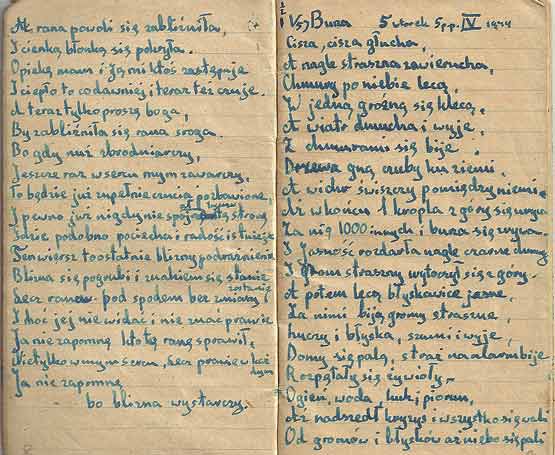 Aż rana powoli się zabliźniła,
I cienką błonką się pokryła.
Opiekę mam i Ją mi ktoś zastępuje
I ciepło to co dawniej i teraz też czuję.
A teraz tylko proszę boga,
By zabliźniła się rana sroga
Bo gdy nóż zbrodniarczy,
Jeszcze raz w sercu mym zawarczy,
To będzie już zupełnie czucia pozbawione,
I pewno już nigdy nie spojrzy w tę stronę
Gdzie podobno pociecha i radość istnieje
Ten wiersz to ostatnie blizny podrażnienie
Blizna się pogrubi i znakiem się stanie
Lecz rana pod spodem bez zmiany zostanie
I choć jej nie widać i nie znać prawie
Ja nie zapomnę kto tę ranę sprawił,
Nie tylko w mym sercu, lecz prawie w każdym
Ja nie zapomnę
bo blizna wystarczy.
V5) Burza 5 wtorek 5 p.p. IV 1944
Cisza, cisza głucha,
A nagle straszna zawierucha,
Chmury po niebie lecą,
W jedną groźną się klecą,
A wiatr dmucha i wyje,
Z chmurami się bije.
Drzewa gną czuby ku ziemi.
A wicher świszczy pomiędzy niemi.
Aż w końcu 1 kropla z góry się urywa
Za nią 1000 innych i burza się wyrywa.
I jasność rozdarła nagle czarne chmury
I grom straszny wytoczył się z góry.
A potem lecą błyskawice jasne,
Za nimi biją gromy straszne,
huczy i błyska, szumi i wyje,
Domy się palą, straż na alarm bije.
Rozpętały się żywioły.
Ogień, woda, huk i piorun,
Aż nadszedł kryzys i wszystko się wali
Od gromów i błysków aż niebo się pali